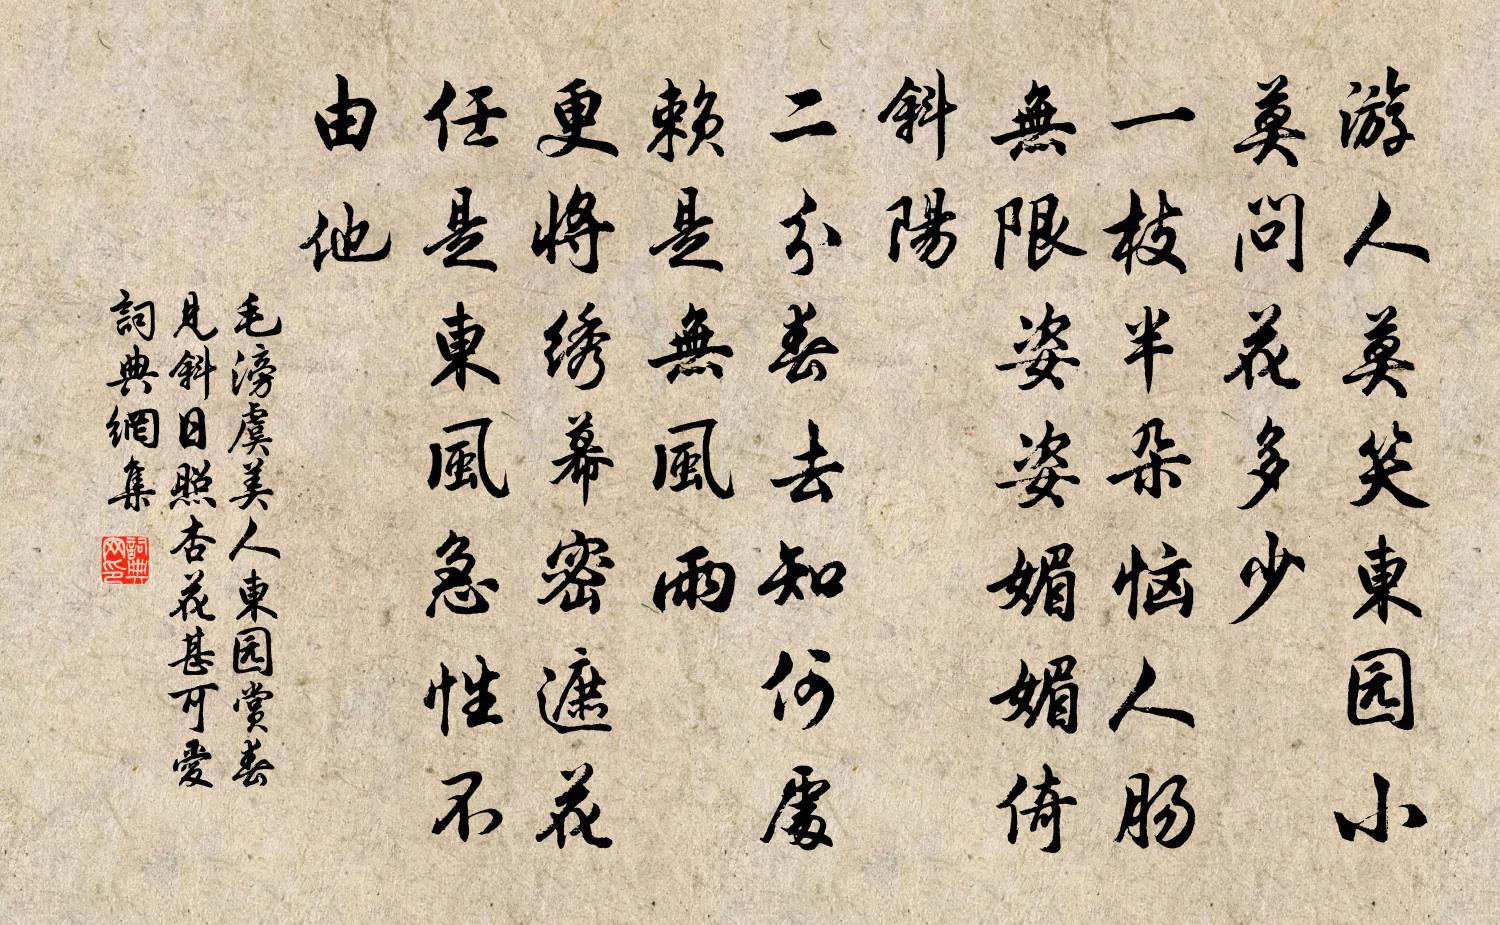 游人莫笑東园小
莫问花多少
一枝半朵恼人肠
無限姿姿媚媚倚
斜陽
二分春去知何處
赖是無風雨
更将绣幕密遮花
任是東風急性不
由他
毛滂虞美人東园赏春
见斜日照杏花甚可愛
詞典網集
詞典网印